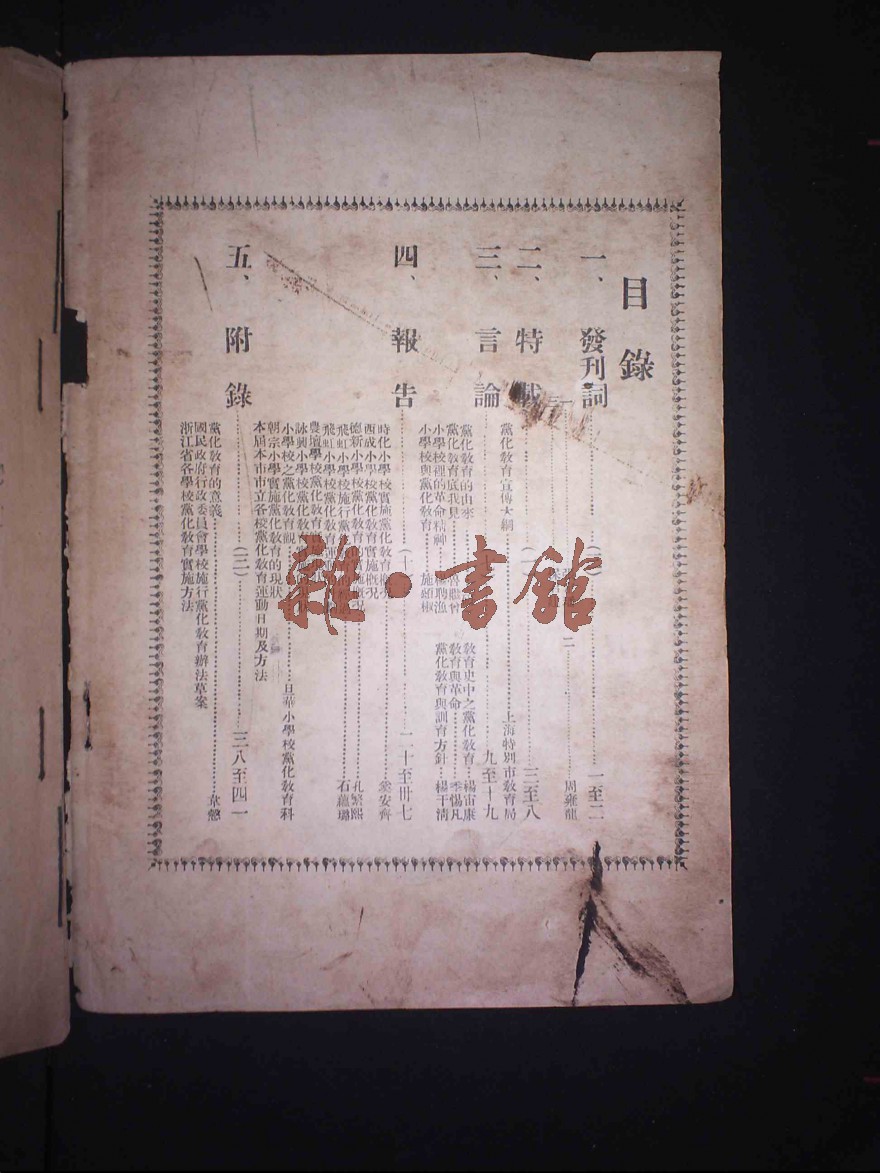 目錄
一、發刊詞 一至二
周雍龍
二、特載 三至八
黨化教育宣傳大綱 上海特別市教育局
三、言論 九至十九
黨化教育的由來 教育史中之黨化教育 楊宙康
黨化教育底我見 教育與革命 季惕凡
小學校裡的革命精神 黨化教育與訓育方針 楊干淸
小學校與黨化教育 施頌椒
四、報告 二十至卅七
時化小學校實施黨化教育概況
西成小學校黨化教育實施概況
德新小學校黨化教育 孔繁熙
飛虹小學校施行黨 石蘊璐
飛虹小學校黨化教育運
農壇學校黨化教育
詠興小學校黨化教育
小學校之黨化教育觀 旦華小學校黨化教育科
朝宗小學實施黨化教育的現狀
本屆本市市立各校黨化教育運動日期及方法
五、附錄 三八至四一
黨化教育的意義 韋慤
國民政府行政委員會學校施行黨化教育辦法草案
浙江省各學校黨化教育實施方法
雜·書館